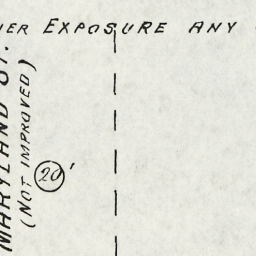 EXPOSURE ANY
MARYLAND ST.
(NOT IMPROVED)
20'